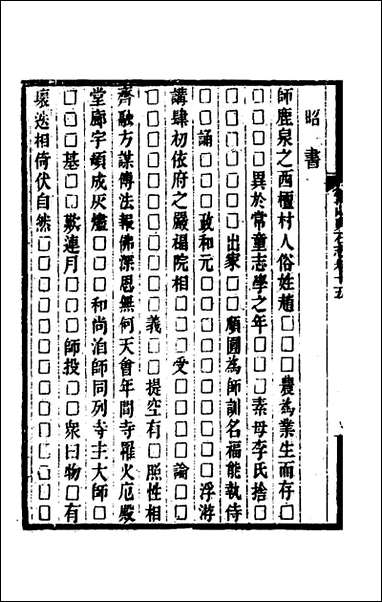 昭書
師鹿泉之西檀村人俗姓趙□□□農為業生而存□
□□□□異於常童志學之年□□□□素母李氏捨□
□□□□□□□出家□□願圓為師訓名福能執侍
□□誦□□□政和元□□□□□□□□□□浮游
講肆初依府之嚴福院相□□□受□□□□□論□
□□□□□□□□□□義□□提空有□照性相
齊融方謀傳法報佛深恩無何天會年間寺罹火厄殿
堂廊宇頓成灰燼□□□和尚洎師同列寺主大師□
□□□基□□歎連月□□□師投□□衆曰物□有
壞迭相倚伏自然□□□□□□□□□□□□□□